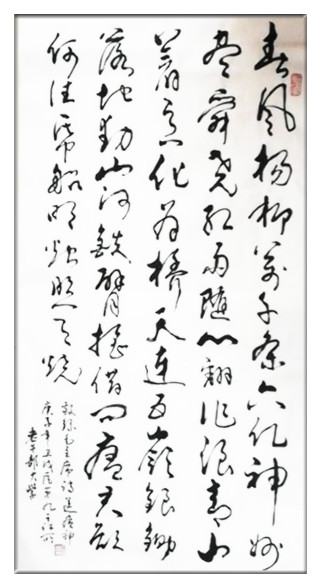 春风杨柳万千条六亿神州
尽舜尧红雨随心翻作浪青山
着意化为橋天连五嶺银锄
落地动山河鐵臂摇借问瘟君欲
何往纸船明烛照天烧
敬录毛主席诗送瘟神
庚子年
老干部大学